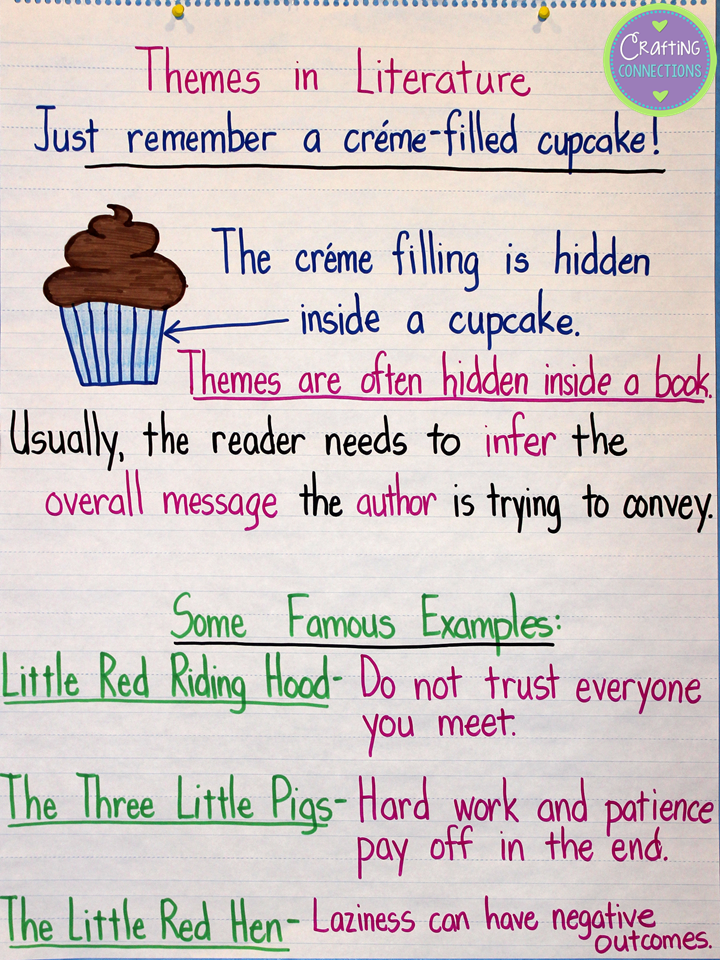 Crafting
CONNECTIONS
Themes in Literature
Just remember a créme-filled cupcake!
The créme filling is hidden
inside a cupcake.
Themes are often hidden inside a book.
Usually, the reader needs to infer the
overall message the author is trying to convey.
Some Famous Examples:
Little Red Riding Hood- Do not trust everyone
you meet.
The Three Little Pigs- Hard work and patience
pay off in the end.
The Little Red Hen- Laziness can have negative
outcomes.